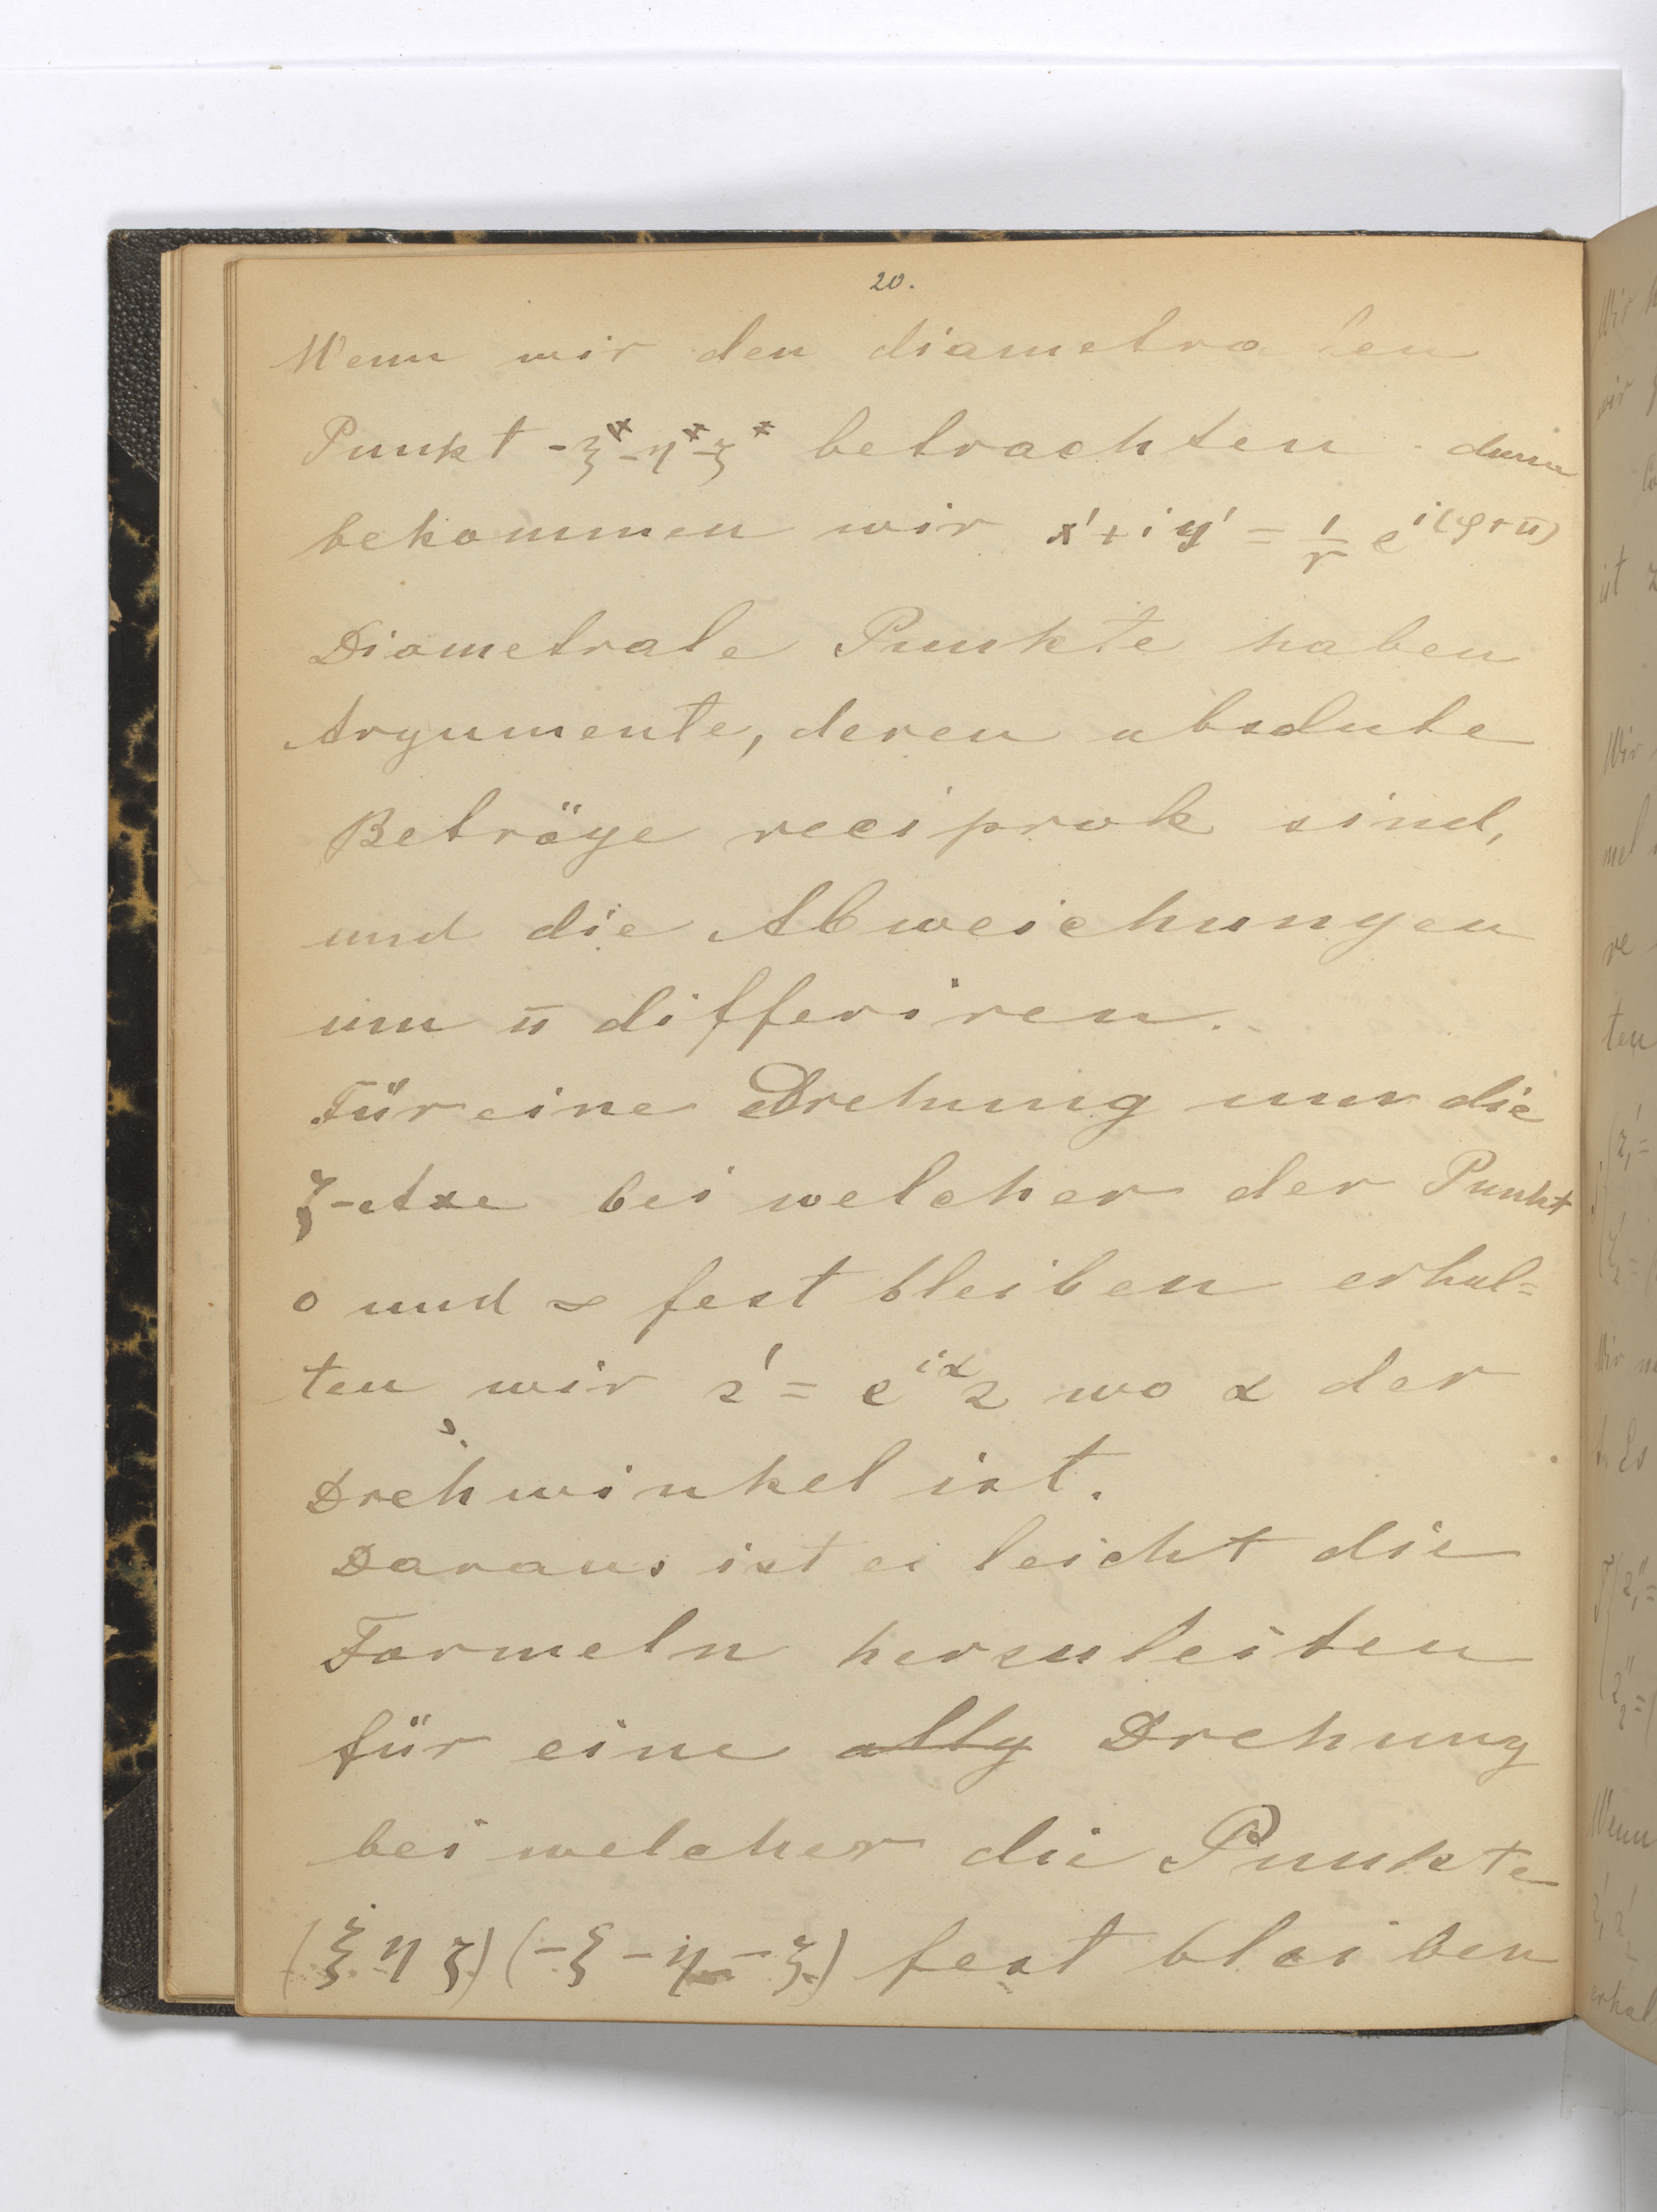 20.
Wenn wir den diametralen
Punkt -ξ* -η* -ζ* betrachten dann
bekommen wir x' + iy' = 1/r e^{i(φ+π)}
Diametrale Punkte haben
Argumente, deren absolute
Beträge reciprok sind,
und die Abweichungen
um π differiren.
Für eine Drehung um die
ζ-Axe bei welcher der Punkt
0 und ∞ fest bleiben erhal=
ten wir z' = e^{iα} z wo α der
Drehwinkel ist.
Daraus ist es leicht die
Formeln herzuleiten
für eine allg Drehung
bei welcher die Punkte
(ξ η ζ) (-ξ -η -ζ) fest bleiben